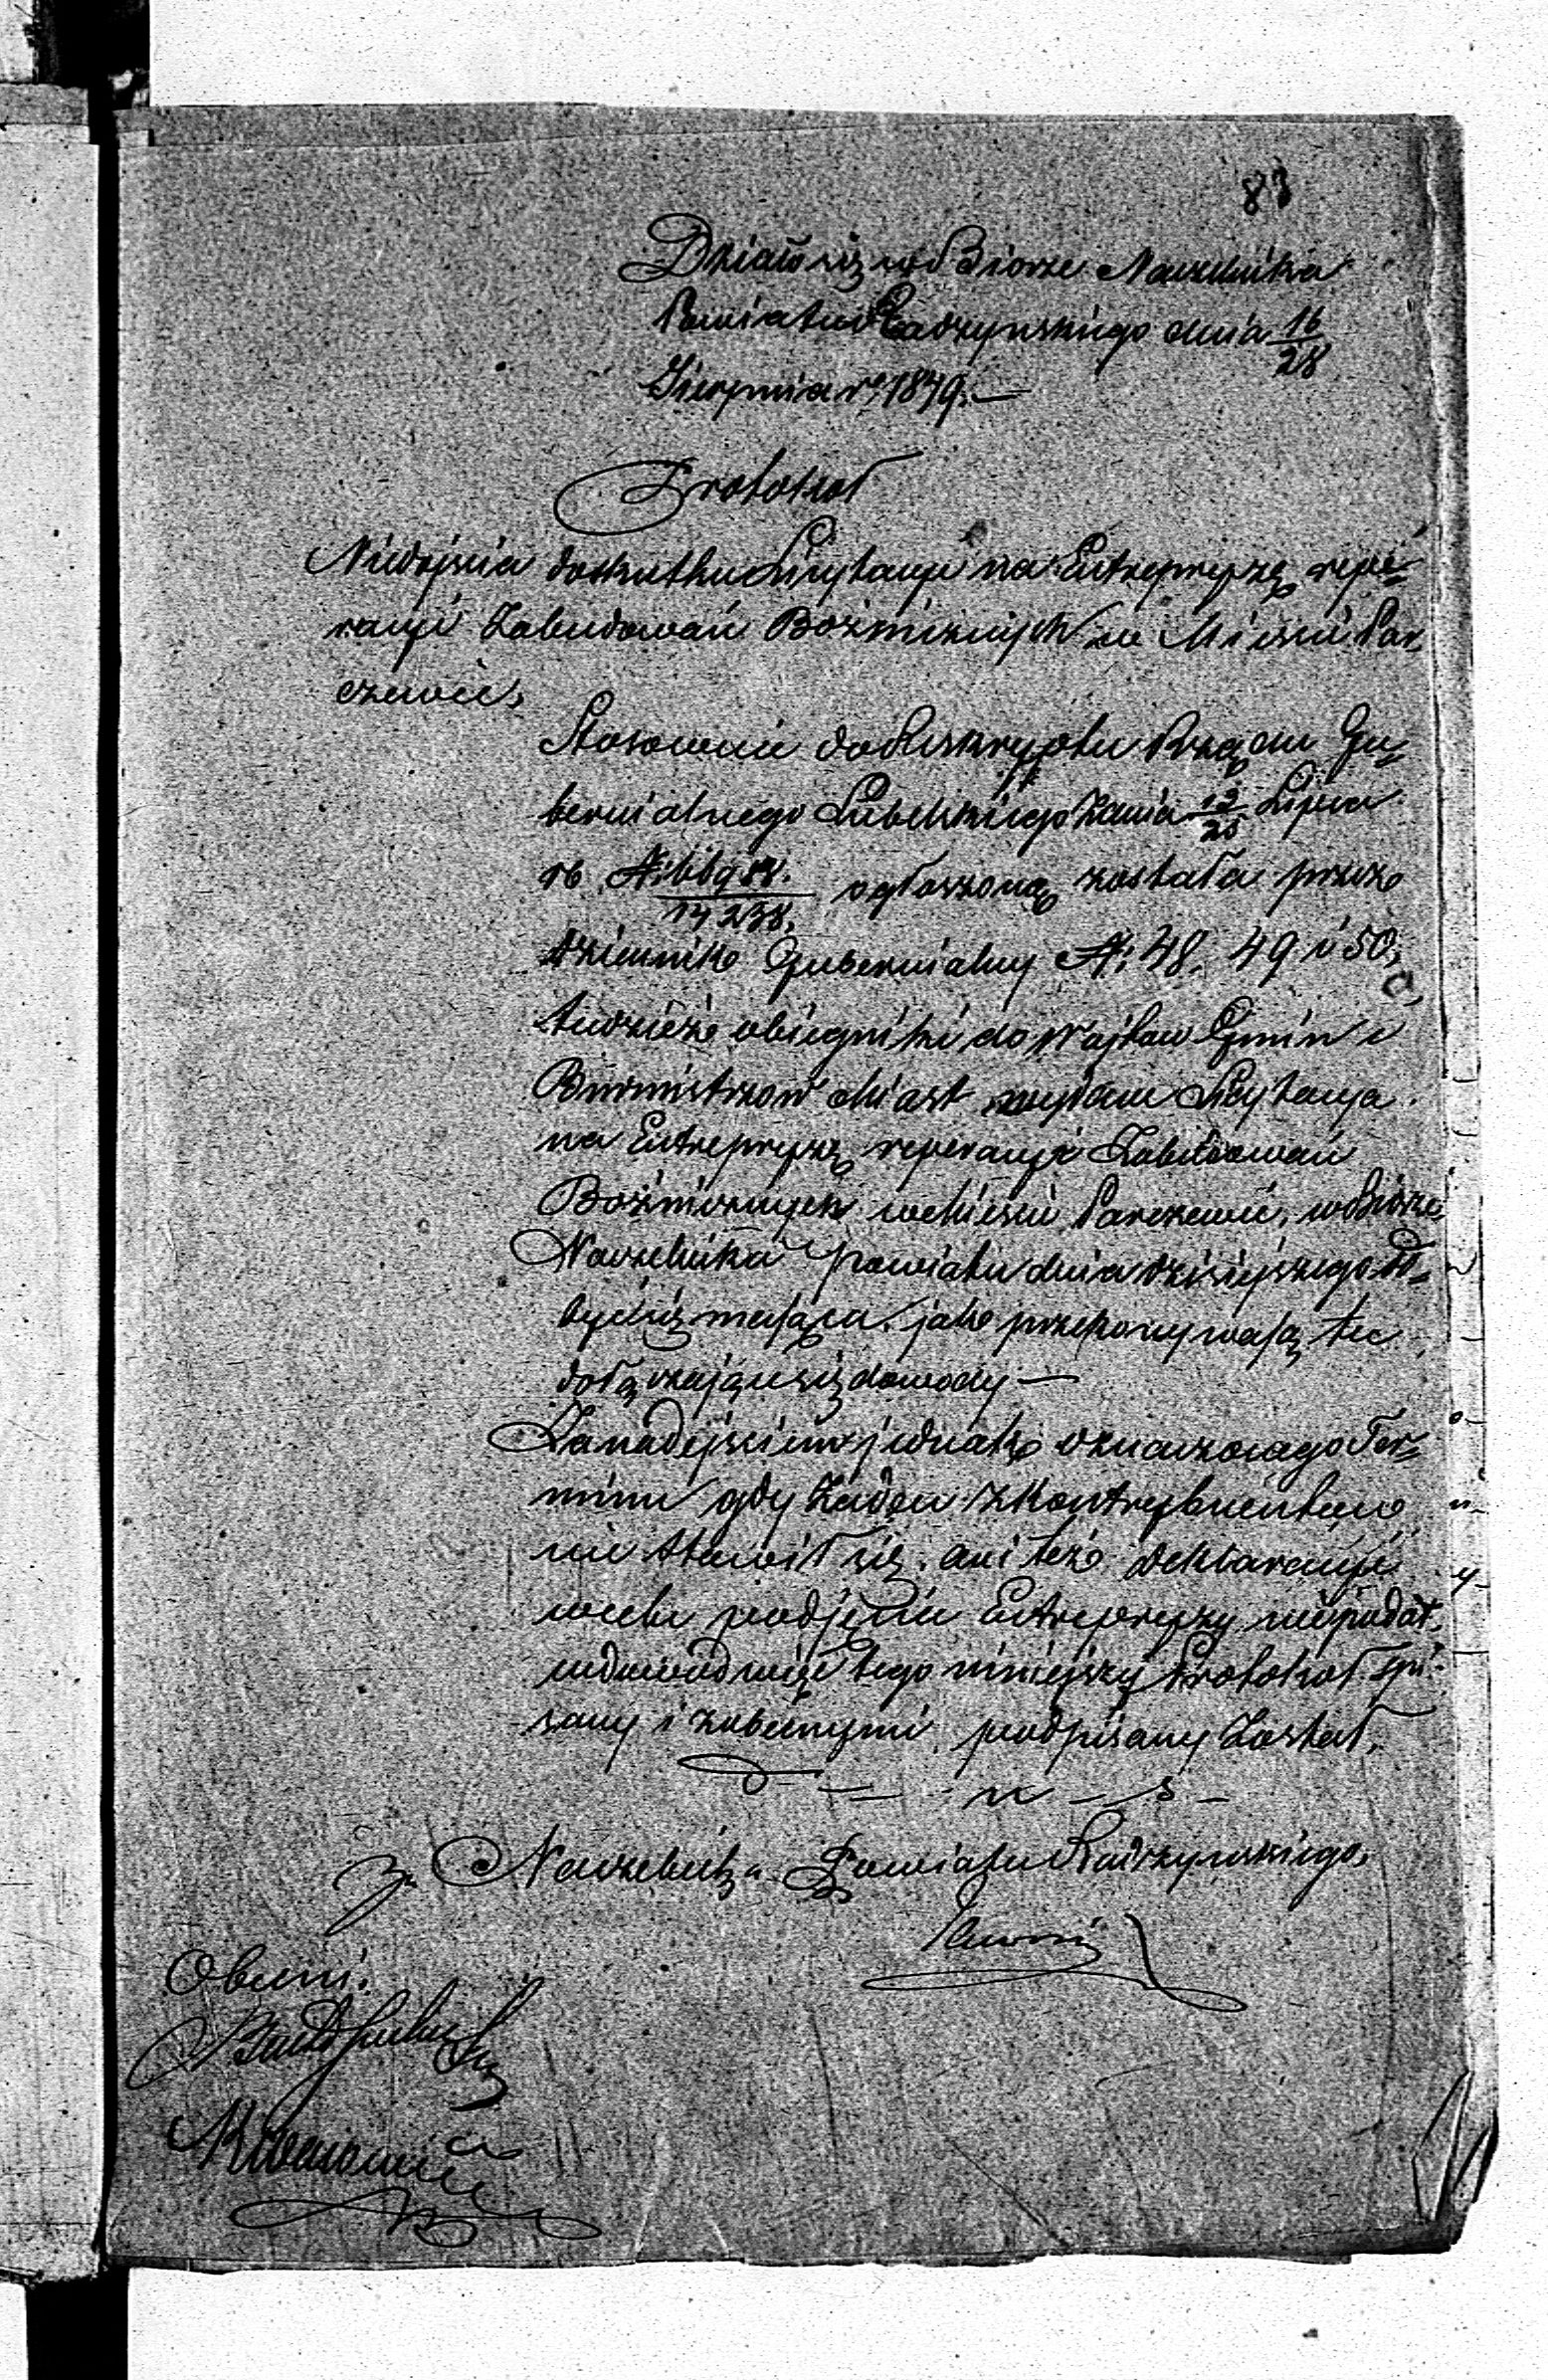 83
Działo się w Biorze Naczelnika
Powiatu Radzyńskiego dnia 16/28
Sierpnia r. 1849. —
Protokół
Niedojścia do skutku Licytacyi na Entrepryzę repe-
racyi Zabudowań Bożnicznych w Mieście Par-
czewie,
Stosownie do Reskryptu Rządu Gu-
bernialnego Lubelskiego z dnia 13/25 Lipca
rb ogłoszoną została przez
dziennik Gubernialny N: 48. 49 i 50,
tudzież obiegniki do Wójtów Gmin i
Burmistrzów Miast Licytacya
na Entrepryzę reperacyi Zabudowań
Bożnicznych w Mieście Parczewie, w Biorze
Naczelnika Powiatu dnia dzisiejszego od-
bydź się mająca, jak przekonywają te
dołączające się dowody —
Za nadejściem jednak oznaczonego Ter-
minu gdy żaden z Kontrybuentów
nie stawił się, ani też deklaracyi
w celu podjęcia Entrepryzy nie podał,
w dowód więc tego niniejszy Protokół spi-
sany i z obecnymi podpisany został.
Za Naczelnika Powiatu Radzyńskiego,
Obecni: